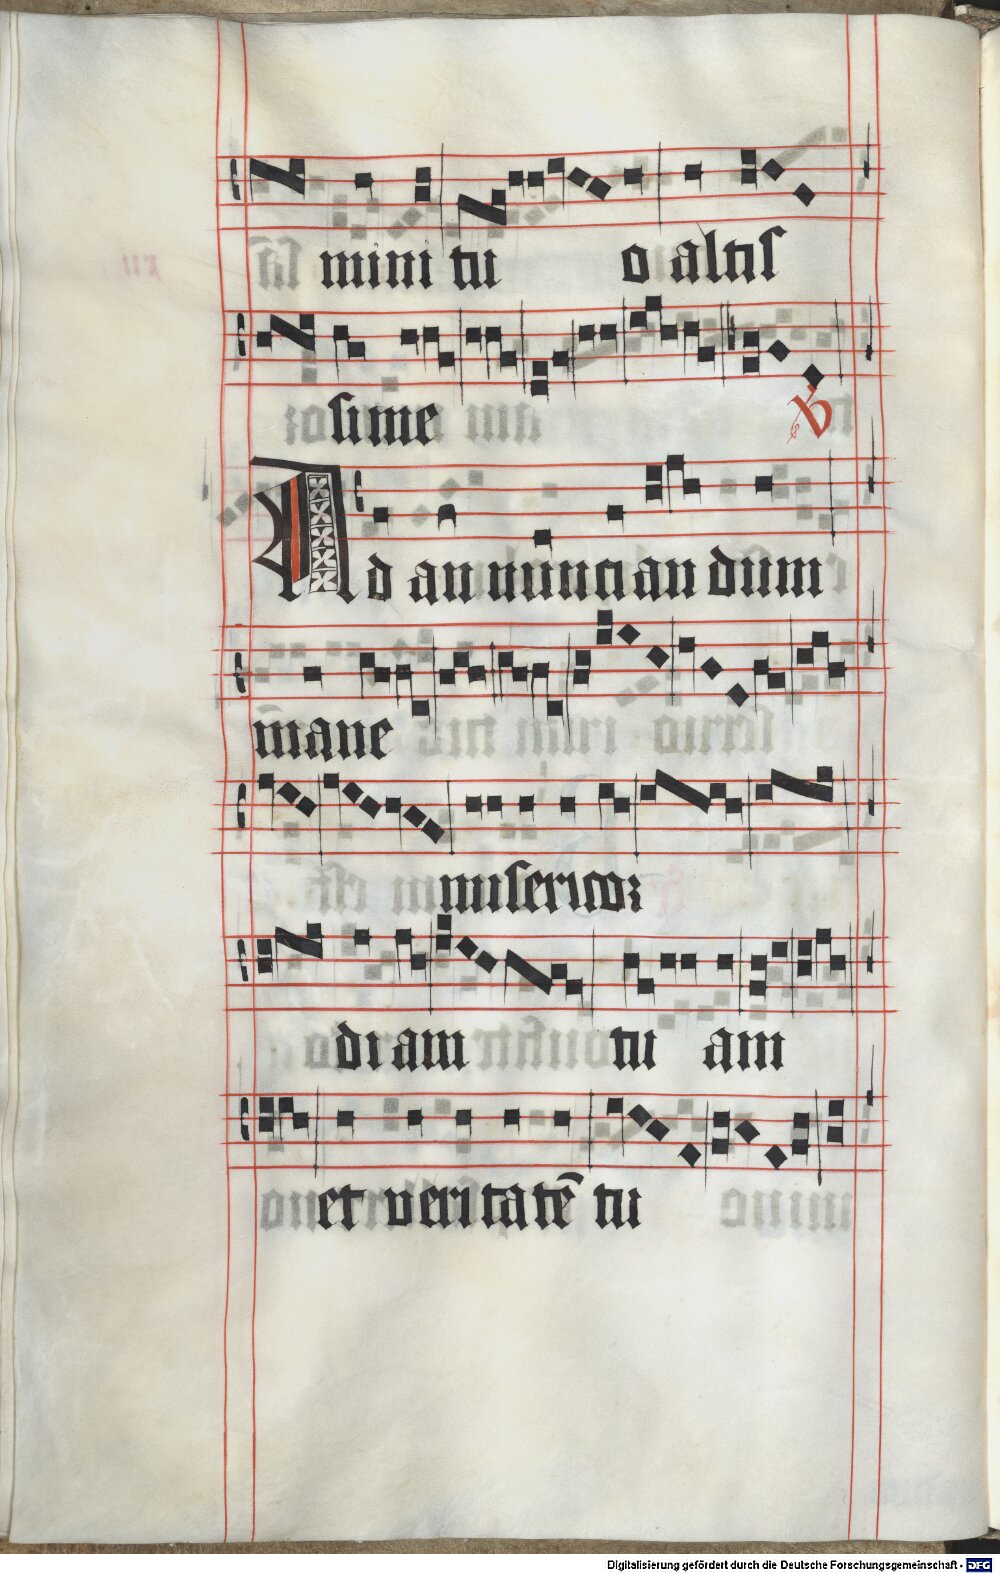 mini tu o altiſ
ſime V
Ad an nunci an dum
mane
miſericoꝛ
diam tu am
et veri tatē tu
Digitalisierung gefördert durch die Deutsche Forschungsgemeinschaft - DFG